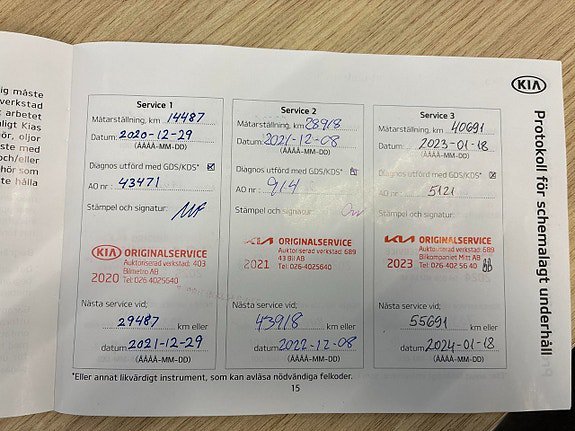 ig måste
verkstad
arbetet
ligt Kias
ör, oljor
ste med
och/eller
hör som
te hålla
KIA
Protokoll för schemalagt underhåll
Service 1
Mätarställning, km 14487
Datum: 2020-12-29
(ÅÅÅÅ-MM-DD)
Diagnos utförd med GDS/KDS*
AO nr: 43471
Stämpel och signatur:
KIA ORIGINALSERVICE
Auktoriserad verkstad: 403
2020 Bilmetro AB
Tel: 026-4025640
Nästa service vid;
29487 km eller
datum: 2021-12-29
(ÅÅÅÅ-MM-DD)
Service 2
Mätarställning, km 28918
Datum: 2021-12-08
(ÅÅÅÅ-MM-DD)
Diagnos utförd med GDS/KDS*
AO nr: 914
Stämpel och signatur:
KIA ORIGINALSERVICE
Auktoriserad verkstad: 689
2021 43 Bil AB
Tel: 026-4025640
Nästa service vid;
43918 km eller
datum: 2022-12-08
(ÅÅÅÅ-MM-DD)
Service 3
Mätarställning, km 40691
Datum: 2023-01-18
(ÅÅÅÅ-MM-DD)
Diagnos utförd med GDS/KDS*
AO nr: 5121
Stämpel och signatur:
KIA ORIGINALSERVICE
Auktoriserad verkstad: 689
2023 Bilkompaniet Mitt AB
Tel: 026-402 56 40
Nästa service vid;
55691 km eller
datum: 2024-01-18
(ÅÅÅÅ-MM-DD)
*Eller annat likvärdigt instrument, som kan avläsa nödvändiga felkoder.
15